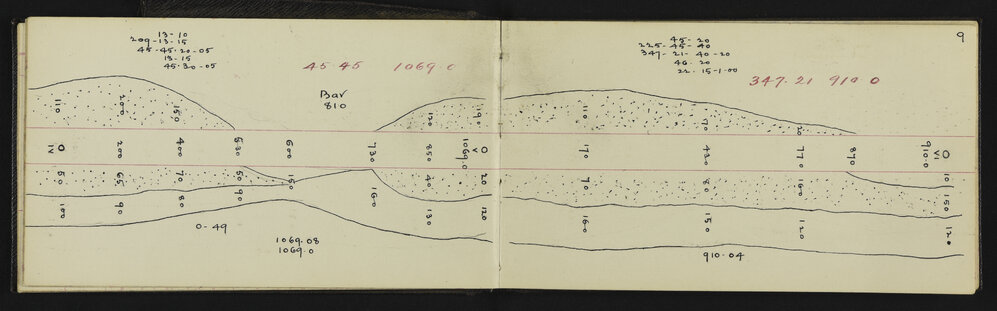 13-10
209-13-15
45-45-20-05
13-15
45-30-05
45-45 1069.0
Bar
810
110 200 150 120 190
O IV 200 400 530 600 730 850 1069.0 O V
50 65 70 50 150 40 20
100 90 80 90 160 130 120
0-49
1069.08
1069.0
9
45-20
225-45-40
347-21-40-20
46-20
22-15-1-00
347.21 910 0
110 70 20
170 430 770 870 910.0 O VI
70 80 160 10
160 150 120 150 120
910.04